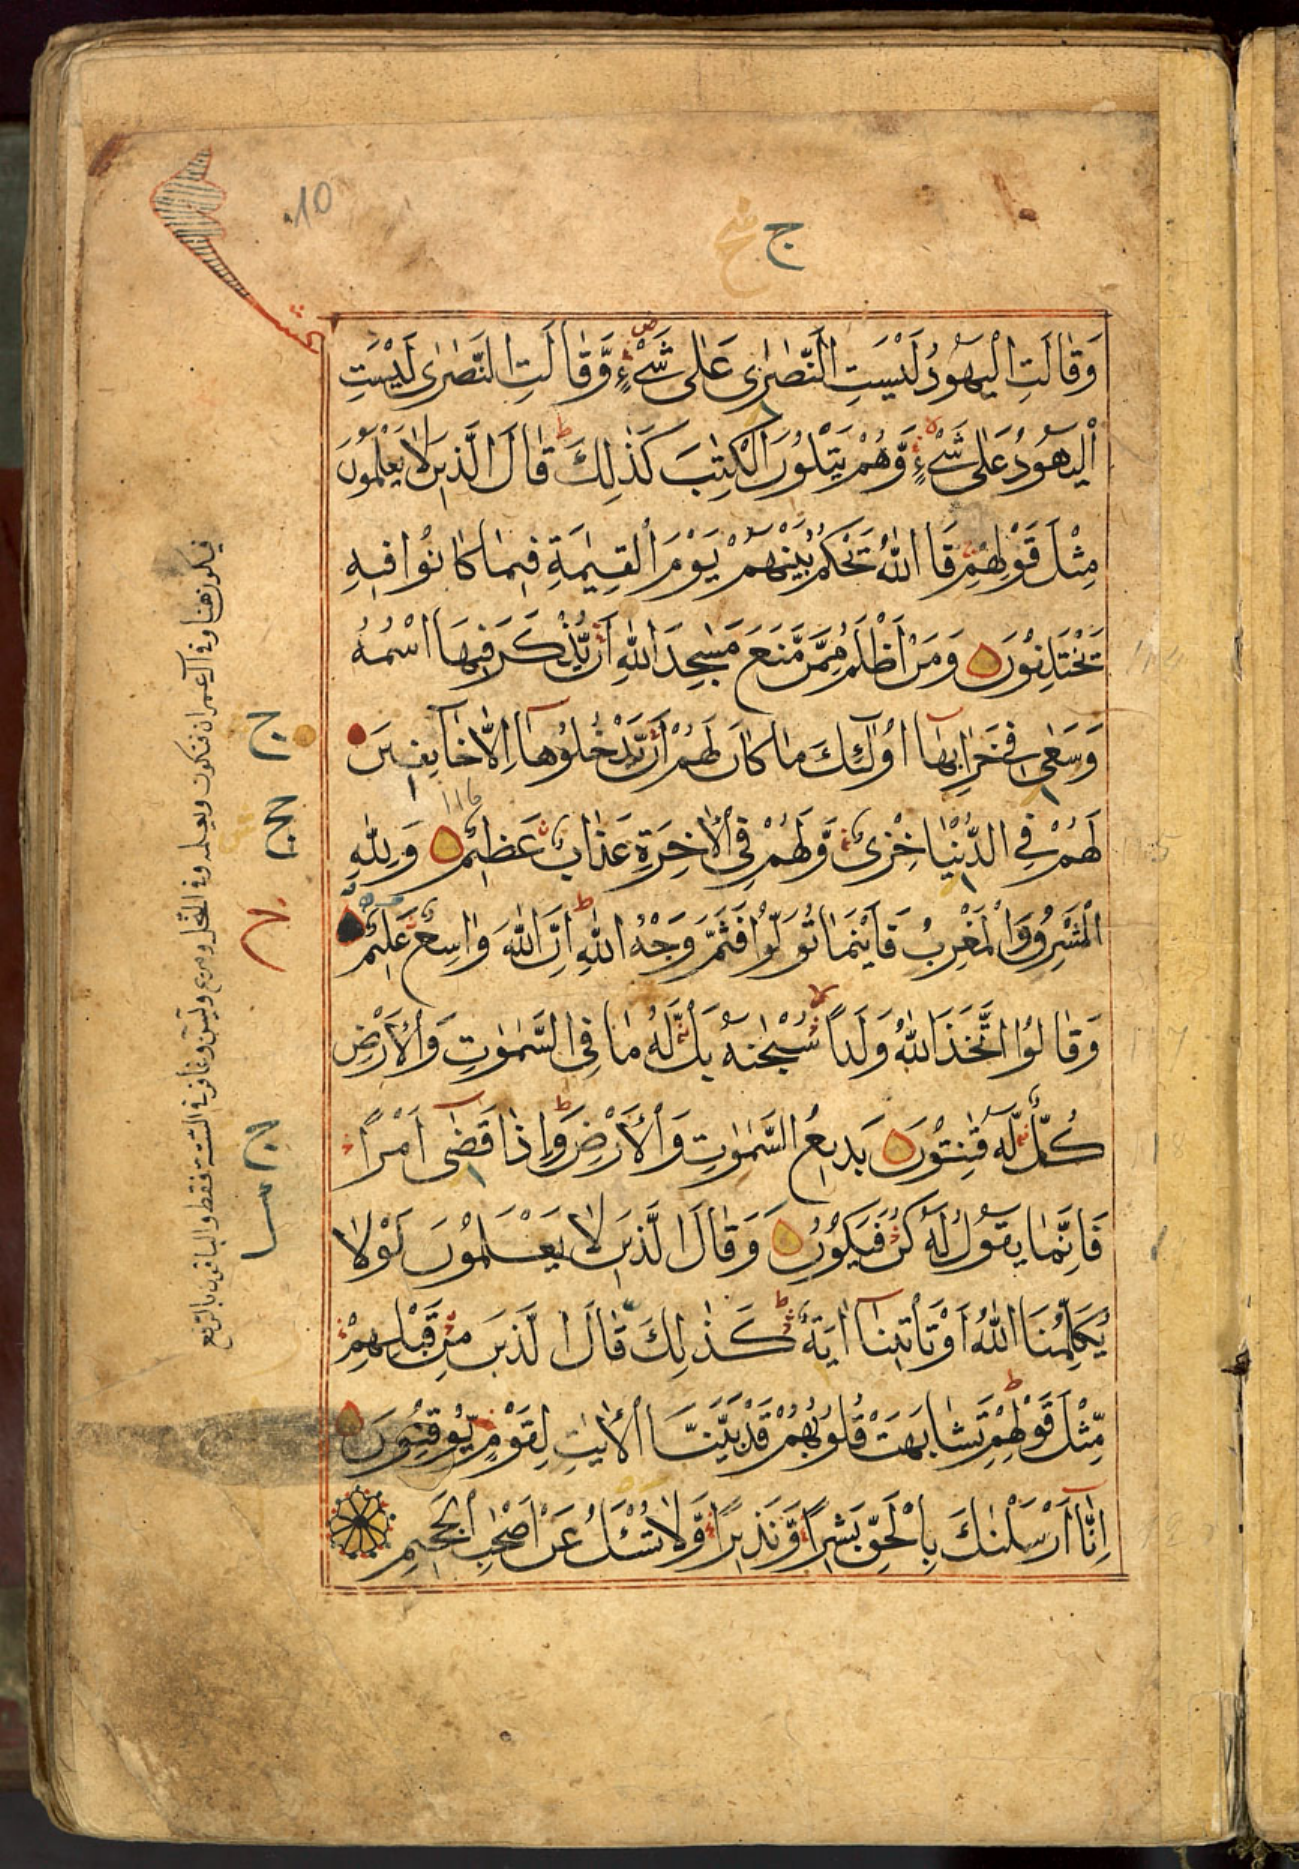 10.
ج
وَقَالَتِ الْيَهُودُ لَيْسَتِ النَّصٰرٰى عَلٰى شَيْءٍ وَّقَالَتِ النَّصٰرٰى لَيْسَتِ
الْيَهُودُ عَلٰى شَيْءٍ وَّهُمْ يَتْلُوْنَ الْكِتٰبَ كَذٰلِكَ قَالَ الَّذِيْنَ لَا يَعْلَمُوْنَ
مِثْلَ قَوْلِهِمْ فَاللّٰهُ يَحْكُمُ بَيْنَهُمْ يَوْمَ الْقِيٰمَةِ فِيْمَا كَانُوْا فِيْهِ
يَخْتَلِفُوْنَ وَمَنْ اَظْلَمُ مِمَّنْ مَّنَعَ مَسٰجِدَ اللّٰهِ اَنْ يُّذْكَرَ فِيْهَا اسْمُهُ
وَسَعٰى فِيْ خَرَابِهَا اُولٰٓئِكَ مَا كَانَ لَهُمْ اَنْ يَّدْخُلُوْهَا اِلَّا خَآئِفِيْنَ
لَهُمْ فِي الدُّنْيَا خِزْيٌ وَّلَهُمْ فِي الْاٰخِرَةِ عَذَابٌ عَظِيْمٌ وَلِلّٰهِ
الْمَشْرِقُ وَالْمَغْرِبُ فَاَيْنَمَا تُوَلُّوْا فَثَمَّ وَجْهُ اللّٰهِ اِنَّ اللّٰهَ وَاسِعٌ عَلِيْمٌ
وَقَالُوا اتَّخَذَ اللّٰهُ وَلَدًا سُبْحٰنَهُ بَلْ لَّهُ مَا فِي السَّمٰوٰتِ وَالْاَرْضِ
كُلٌّ لَّهُ قٰنِتُوْنَ بَدِيْعُ السَّمٰوٰتِ وَالْاَرْضِ وَاِذَا قَضٰٓى اَمْرًا
فَاِنَّمَا يَقُوْلُ لَهُ كُنْ فَيَكُوْنُ وَقَالَ الَّذِيْنَ لَا يَعْلَمُوْنَ لَوْلَا
يُكَلِّمُنَا اللّٰهُ اَوْ تَاْتِيْنَآ اٰيَةٌ كَذٰلِكَ قَالَ الَّذِيْنَ مِنْ قَبْلِهِمْ
مِّثْلَ قَوْلِهِمْ تَشَابَهَتْ قُلُوْبُهُمْ قَدْ بَيَّنَّا الْاٰيٰتِ لِقَوْمٍ يُّوْقِنُوْنَ
اِنَّآ اَرْسَلْنٰكَ بِالْحَقِّ بَشِيْرًا وَّنَذِيْرًا وَّلَا تُسْـَٔلُ عَنْ اَصْحٰبِ الْجَحِيْمِ
فيكون هنا وفي آل عمران فيكون ويعلمه وفي النحل ومريم ويس وغافر في الستة فقط والباقون بالرفع
ج
ج
ج
116